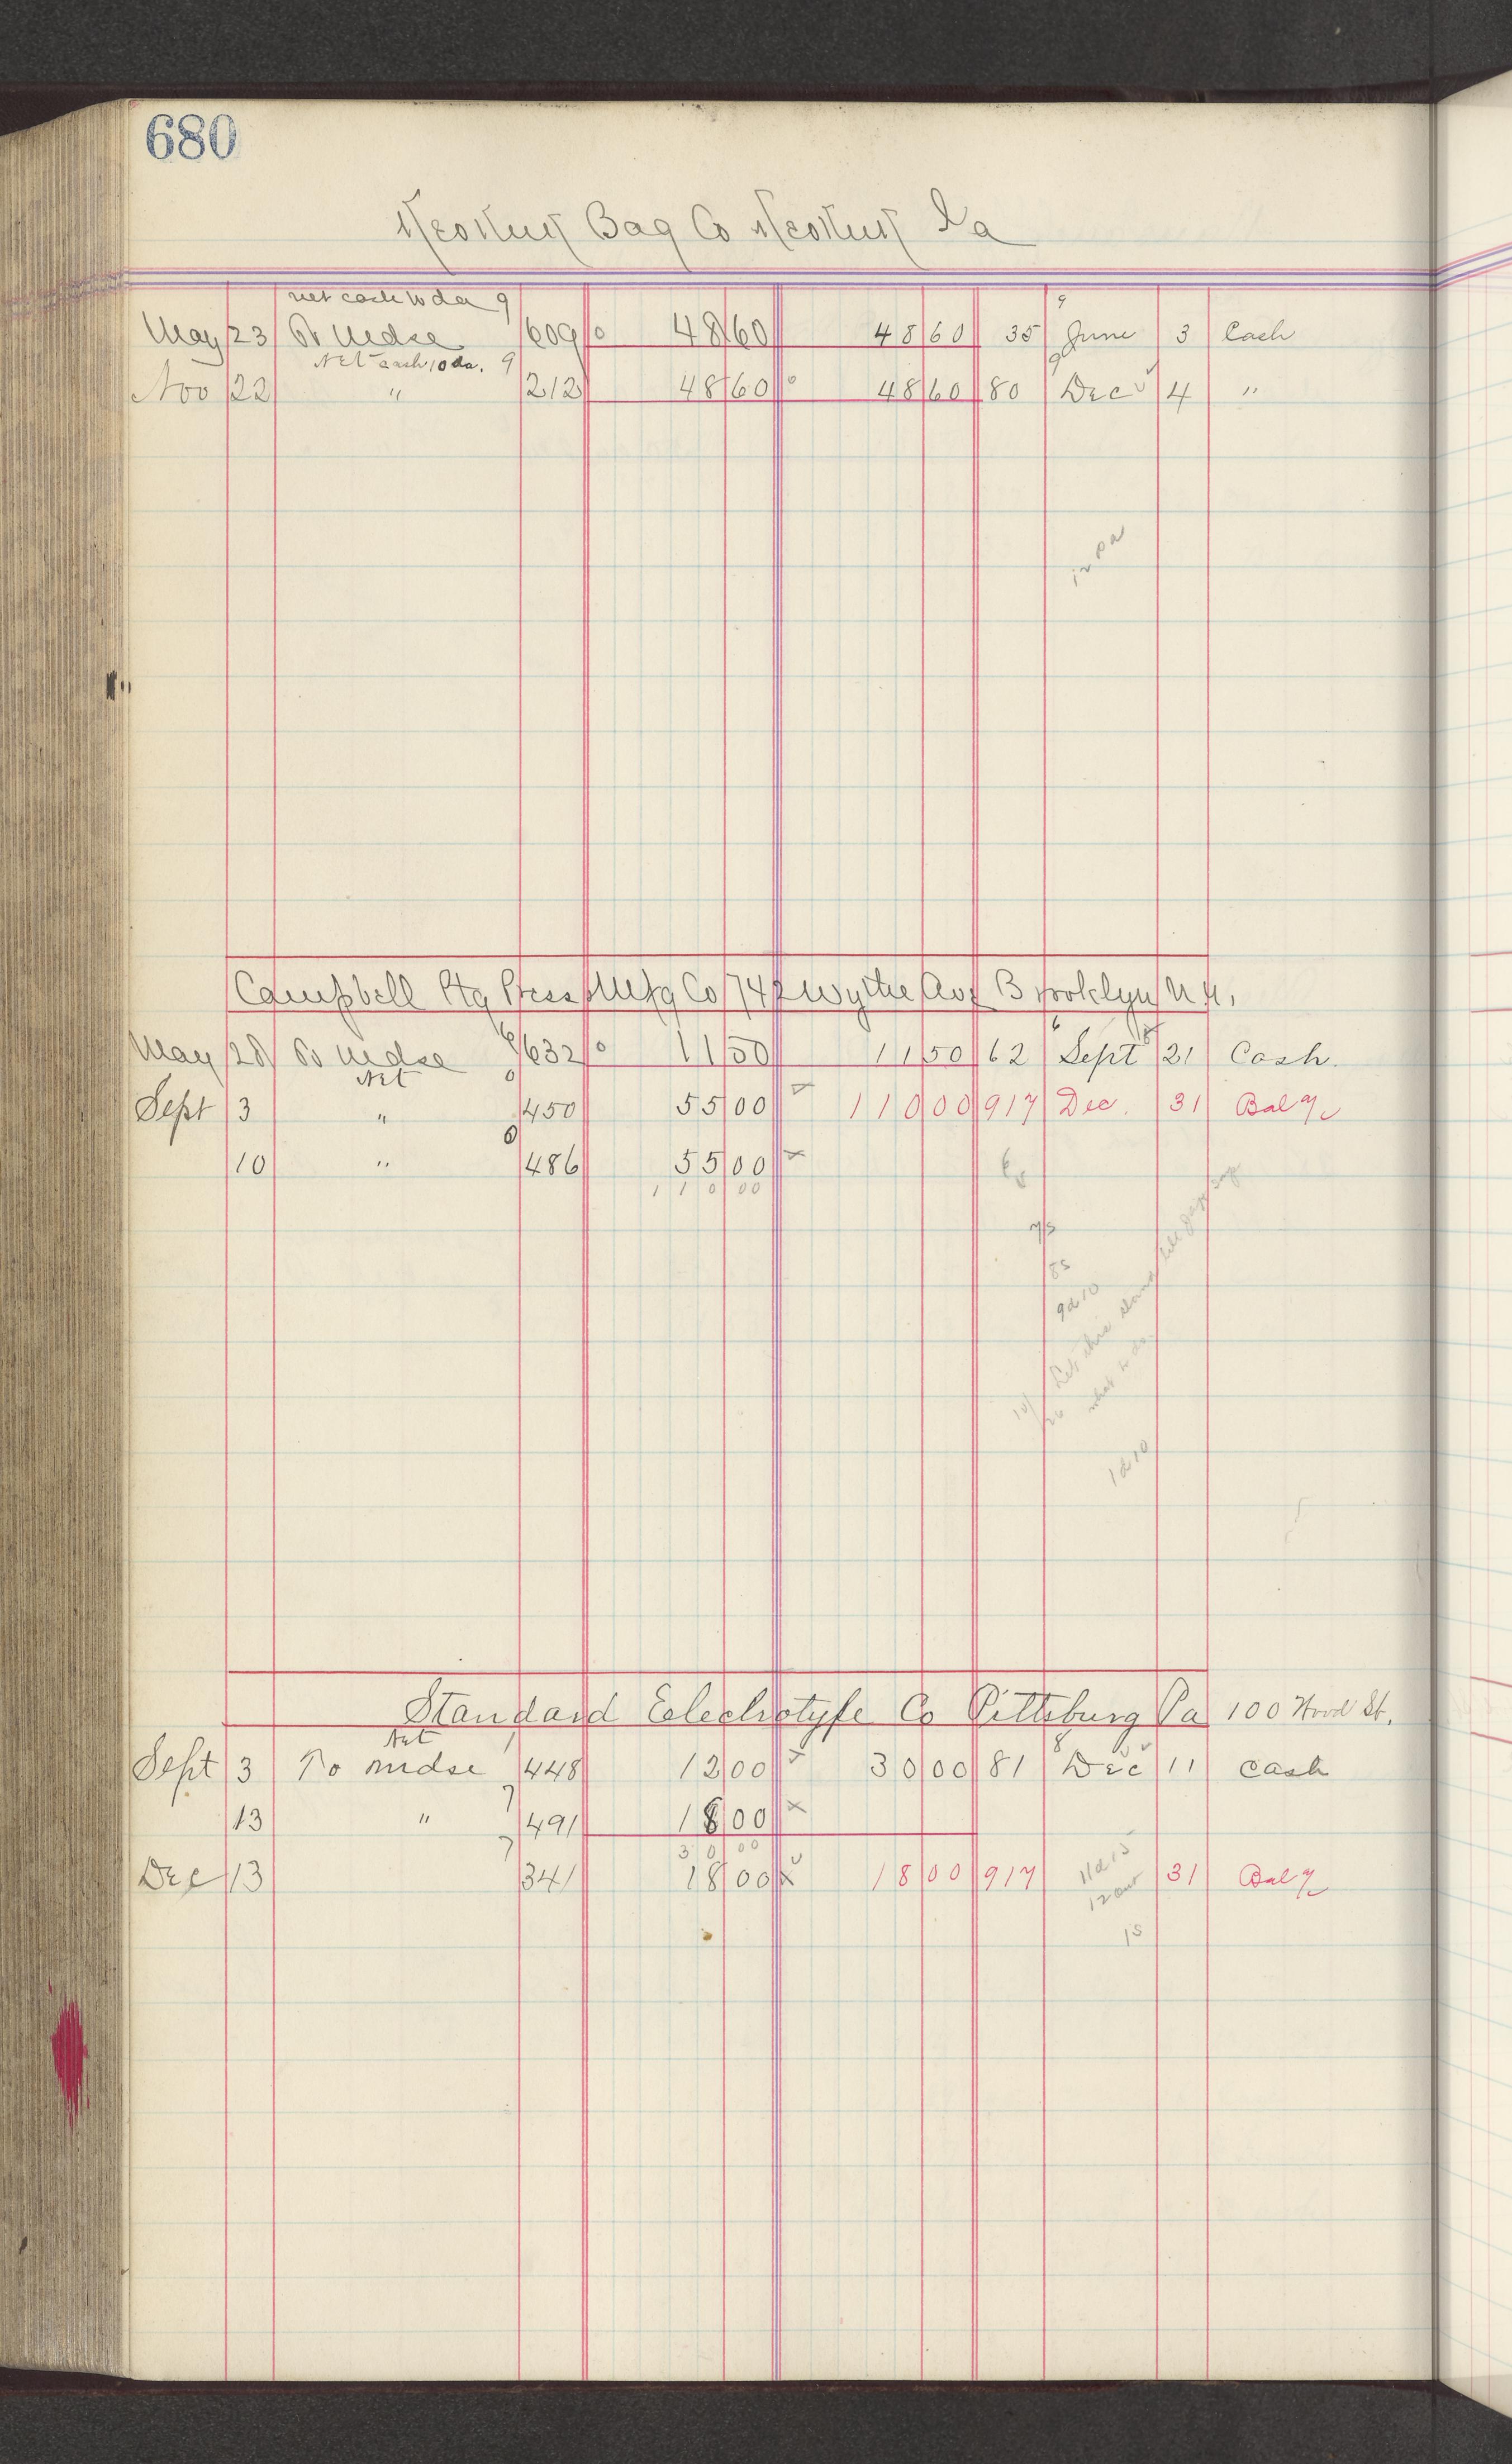 680
Keokuk Bag Co Keokuk Ia
net cash 10 da 9 9
May 23 To Mdse 609 0 48 60 48 60 35 June 3 Cash
Net cash 10 da. 9 9
Nov 22 " 212 48 60 0 48 60 80 Dec 4 "
Campbell Ptg Press & Mfg Co 742 Wythe Ave Brooklyn N.Y.
May 28 To Mdse 6 632 0 11 50 11 50 62 Sept 21 Cash.
Net 0
Sept 3 " 450 55 00 110 00 917 Dec. 31 Bal
0
10 " 486 55 00 x
110 00
7s
8s
9d10
Let this stand till
what to do.
1d10
Standard Eelectrotype Co Pittsburg Pa 100 Wood St.
Net 8
Sept 3 To mdse 448 12 00 x 30 00 81 Dec 11 Cash
7
13 " 491 18 00 x
7 30 00
Dec 13 341 18 00 x 18 00 917 31 Bal
11d15
12 out
1s